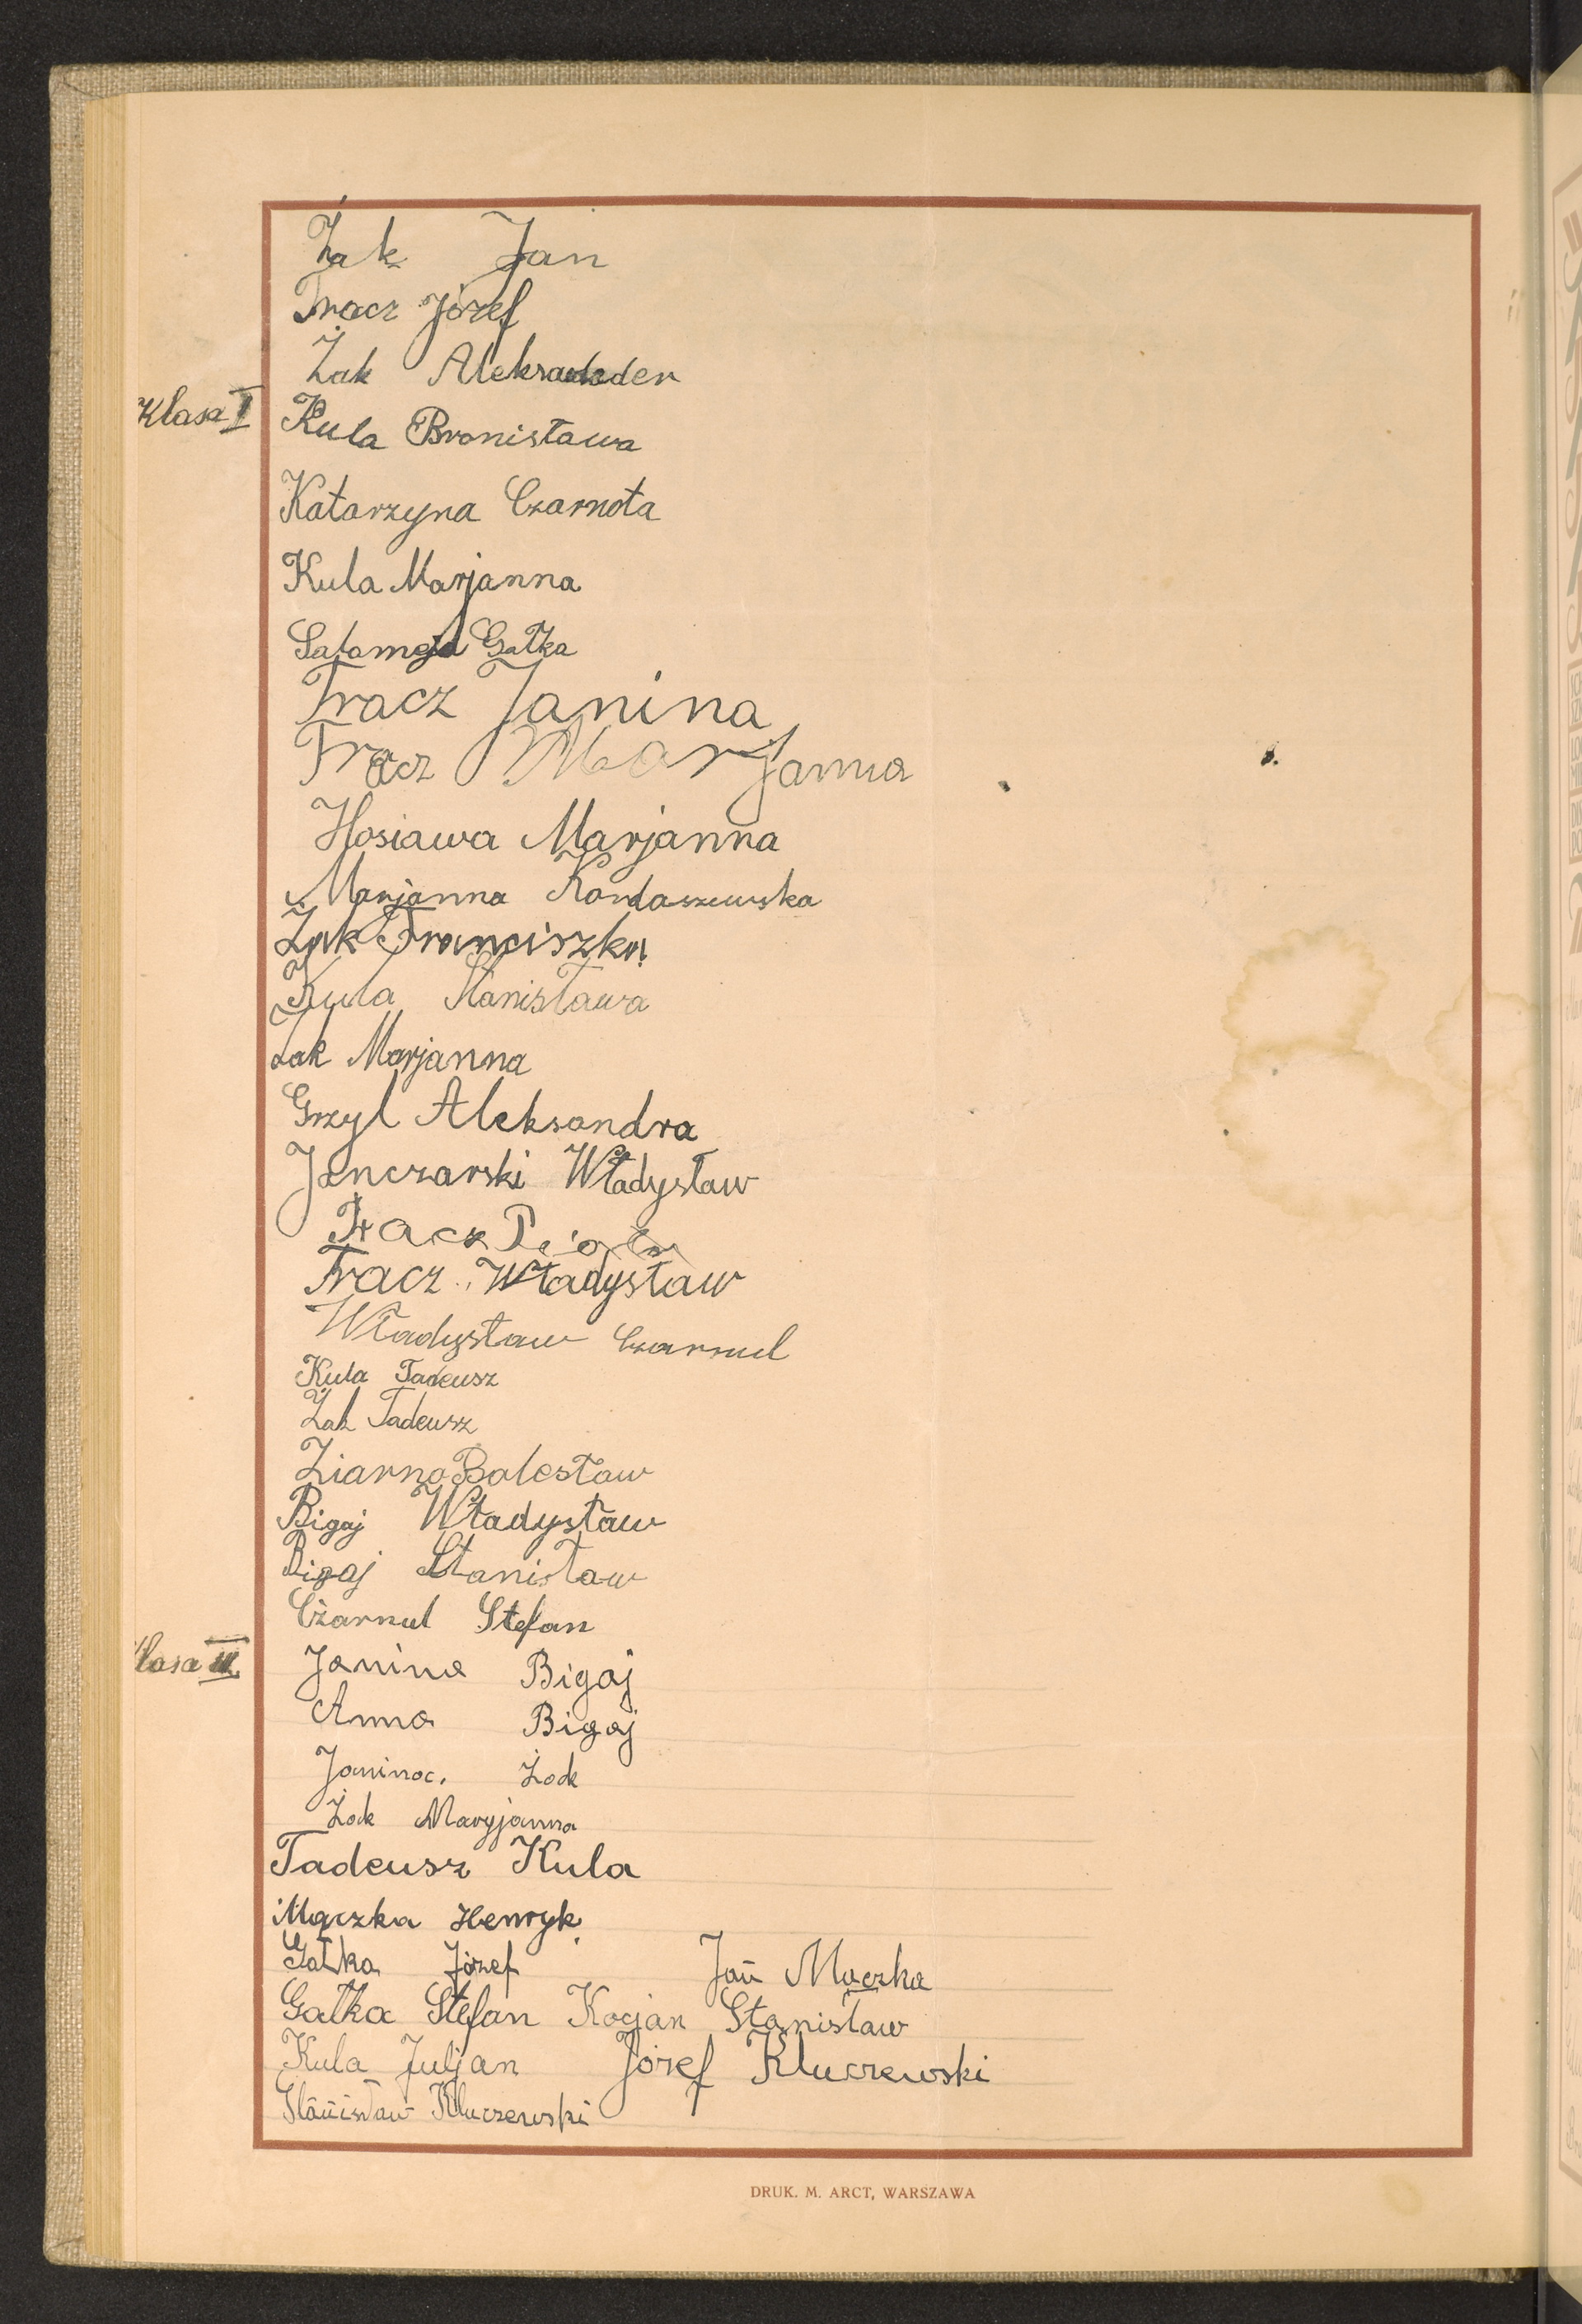 Żak Jan
Tracz Józef
Żak Aleksandder
Klasa I Kula Bronisława
Katarzyna Czarnota
Kula Marjanna
Salomeja Gałka
Tracz Janina
Tracz Marjanna
Hosiawa Marjanna
Marjanna Kordaszewska
Żak Franciszka
Kula Stanisława
Żak Marjanna
Grzyl Aleksandra
Janczarski Władysław
Tracz Piotr
Tracz Władysław
Władysław Czarnul
Kula Tadeusz
Żak Tadeusz
Ziarno Bolesław
Bigaj Władysław
Bigaj Stanisław
Czarnul Stefan
Klasa III Janina Bigaj
Anna Bigaj
Janina Żak
Żak Maryjanna
Tadeusz Kula
Mączka Henryk
Gałka Józef Jan Mączka
Gałka Stefan Kocjan Stanisław
Kula Juljan Józef Kluczewski
Stanisław Kluczewski
DRUK. M. ARCT, WARSZAWA